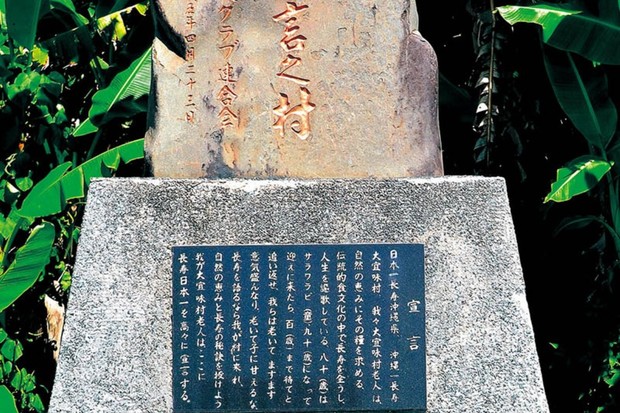 言之村
クラブ連合会
五年四月二十三日
宣言
日本一長寿沖縄県 沖縄一長寿
大宜味村 我々大宜味村老人は
自然の恵みにその糧を求める
伝統的食文化の中で長寿を全うし、
人生を謳歌している。八十歳は
サラワラビ(童)九十歳になって
迎えに来たら、百歳まで待てと
追い返せ、我らは老いてますます
意気盛んなり、老いて子に甘えるな
長寿を語るなら我が村に来れ、
自然の恵みと長寿の秘訣を授けよう
我が大宜味村老人は、ここに
長寿日本一を高々に宣言する。